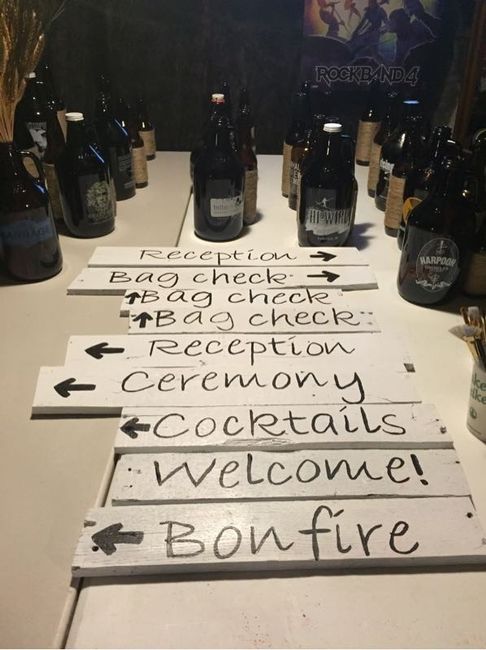 ROCKBAND4
HARPOON
Reception →
Bag check →
↑Bag check
↑Bag check
← Reception
← Ceremony
← Cocktails
Welcome!
← Bonfire